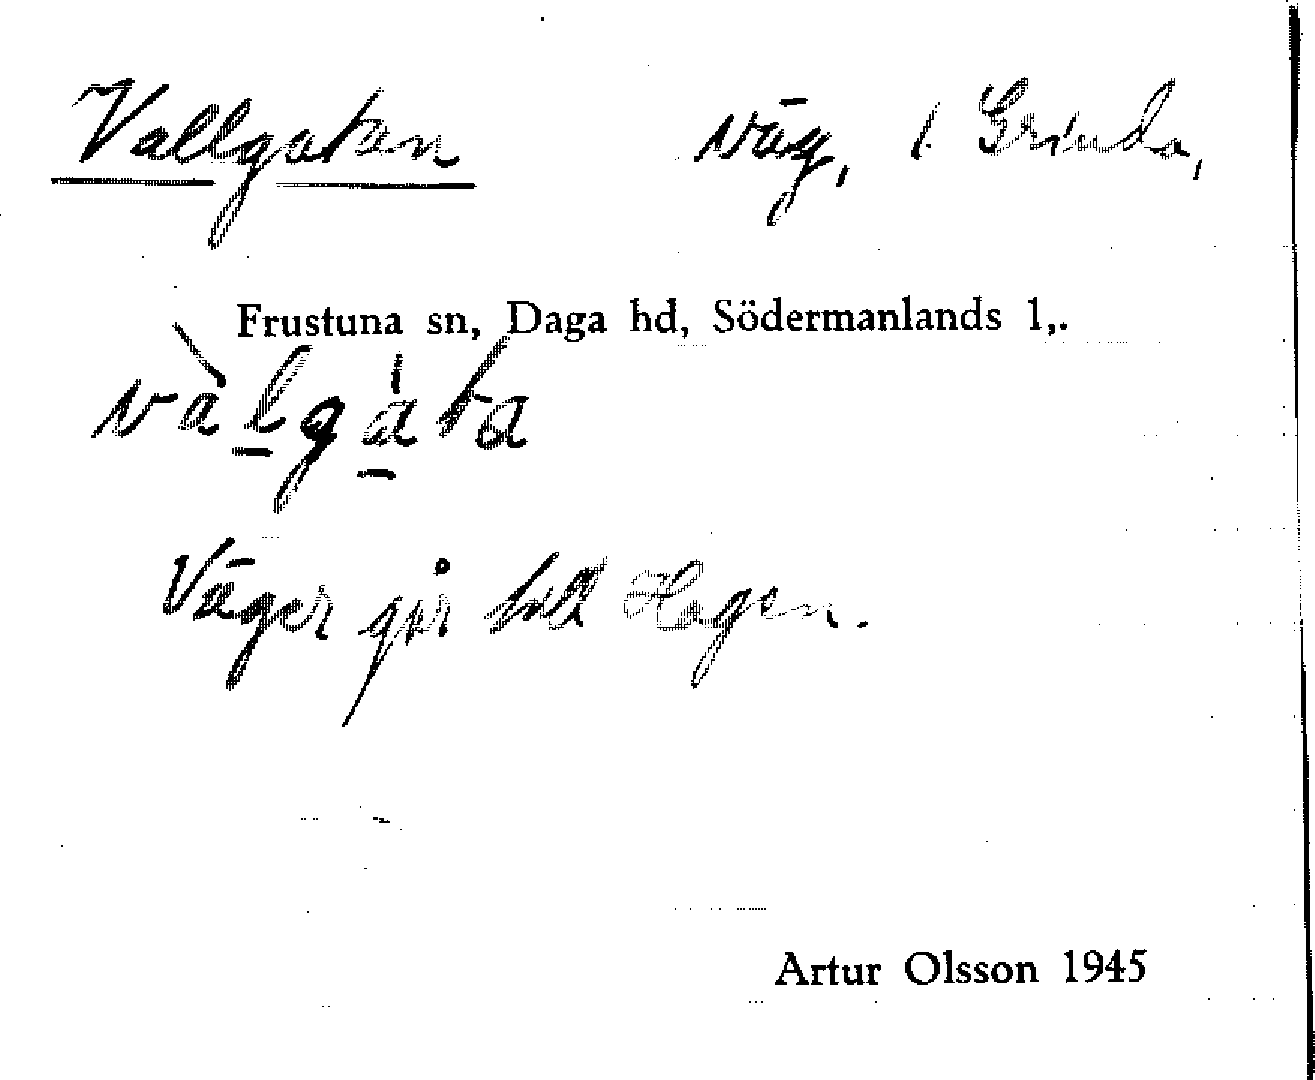 Vallgatan väg, i Grinda,
Frustuna sn, Daga hd, Södermanlands l,.
vàlgáta
Väger går till Hagen.
Artur Olsson 1945